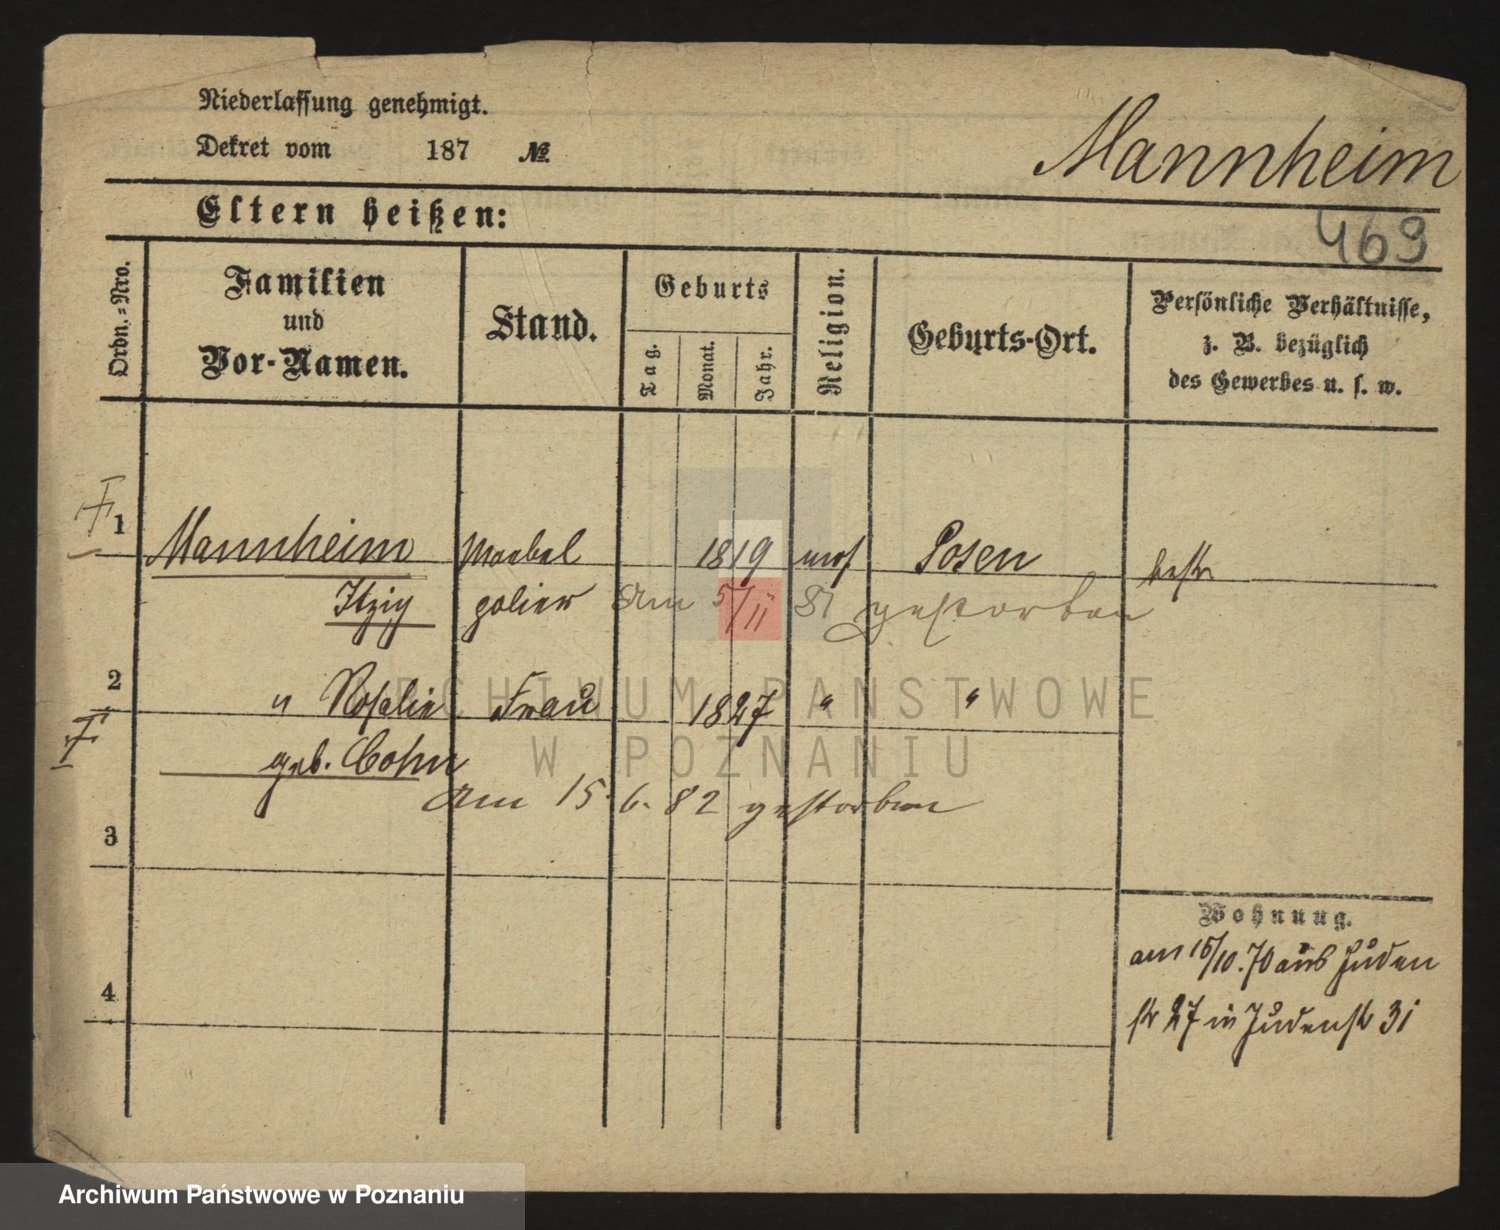 Niederlassung genehmigt.
Dekret vom 187 №
Mannheim
Eltern heißen:
469
Ordn.-Nro.
Familien
und
Vor-Namen.
Stand.
Geburts
Tag.
Monat.
Jahr.
Religion.
Geburts-Ort.
Persönliche Verhältnisse,
z. B. bezüglich
des Gewerbes u. s. w.
1 Mannheim Moebel 1819 mos Posen
Itzig polier Am 5/II 81 gestorben
2 u Rosalie Frau 1827 " "
geb. Cohn
am 15. 6. 82 gestorben
3
4
Wohnung.
am 15/10. 70 aus Juden
str 27 in Judenstr 31
ARCHIWUM PAŃSTWOWE
W POZNANIU
Archiwum Państwowe w Poznaniu